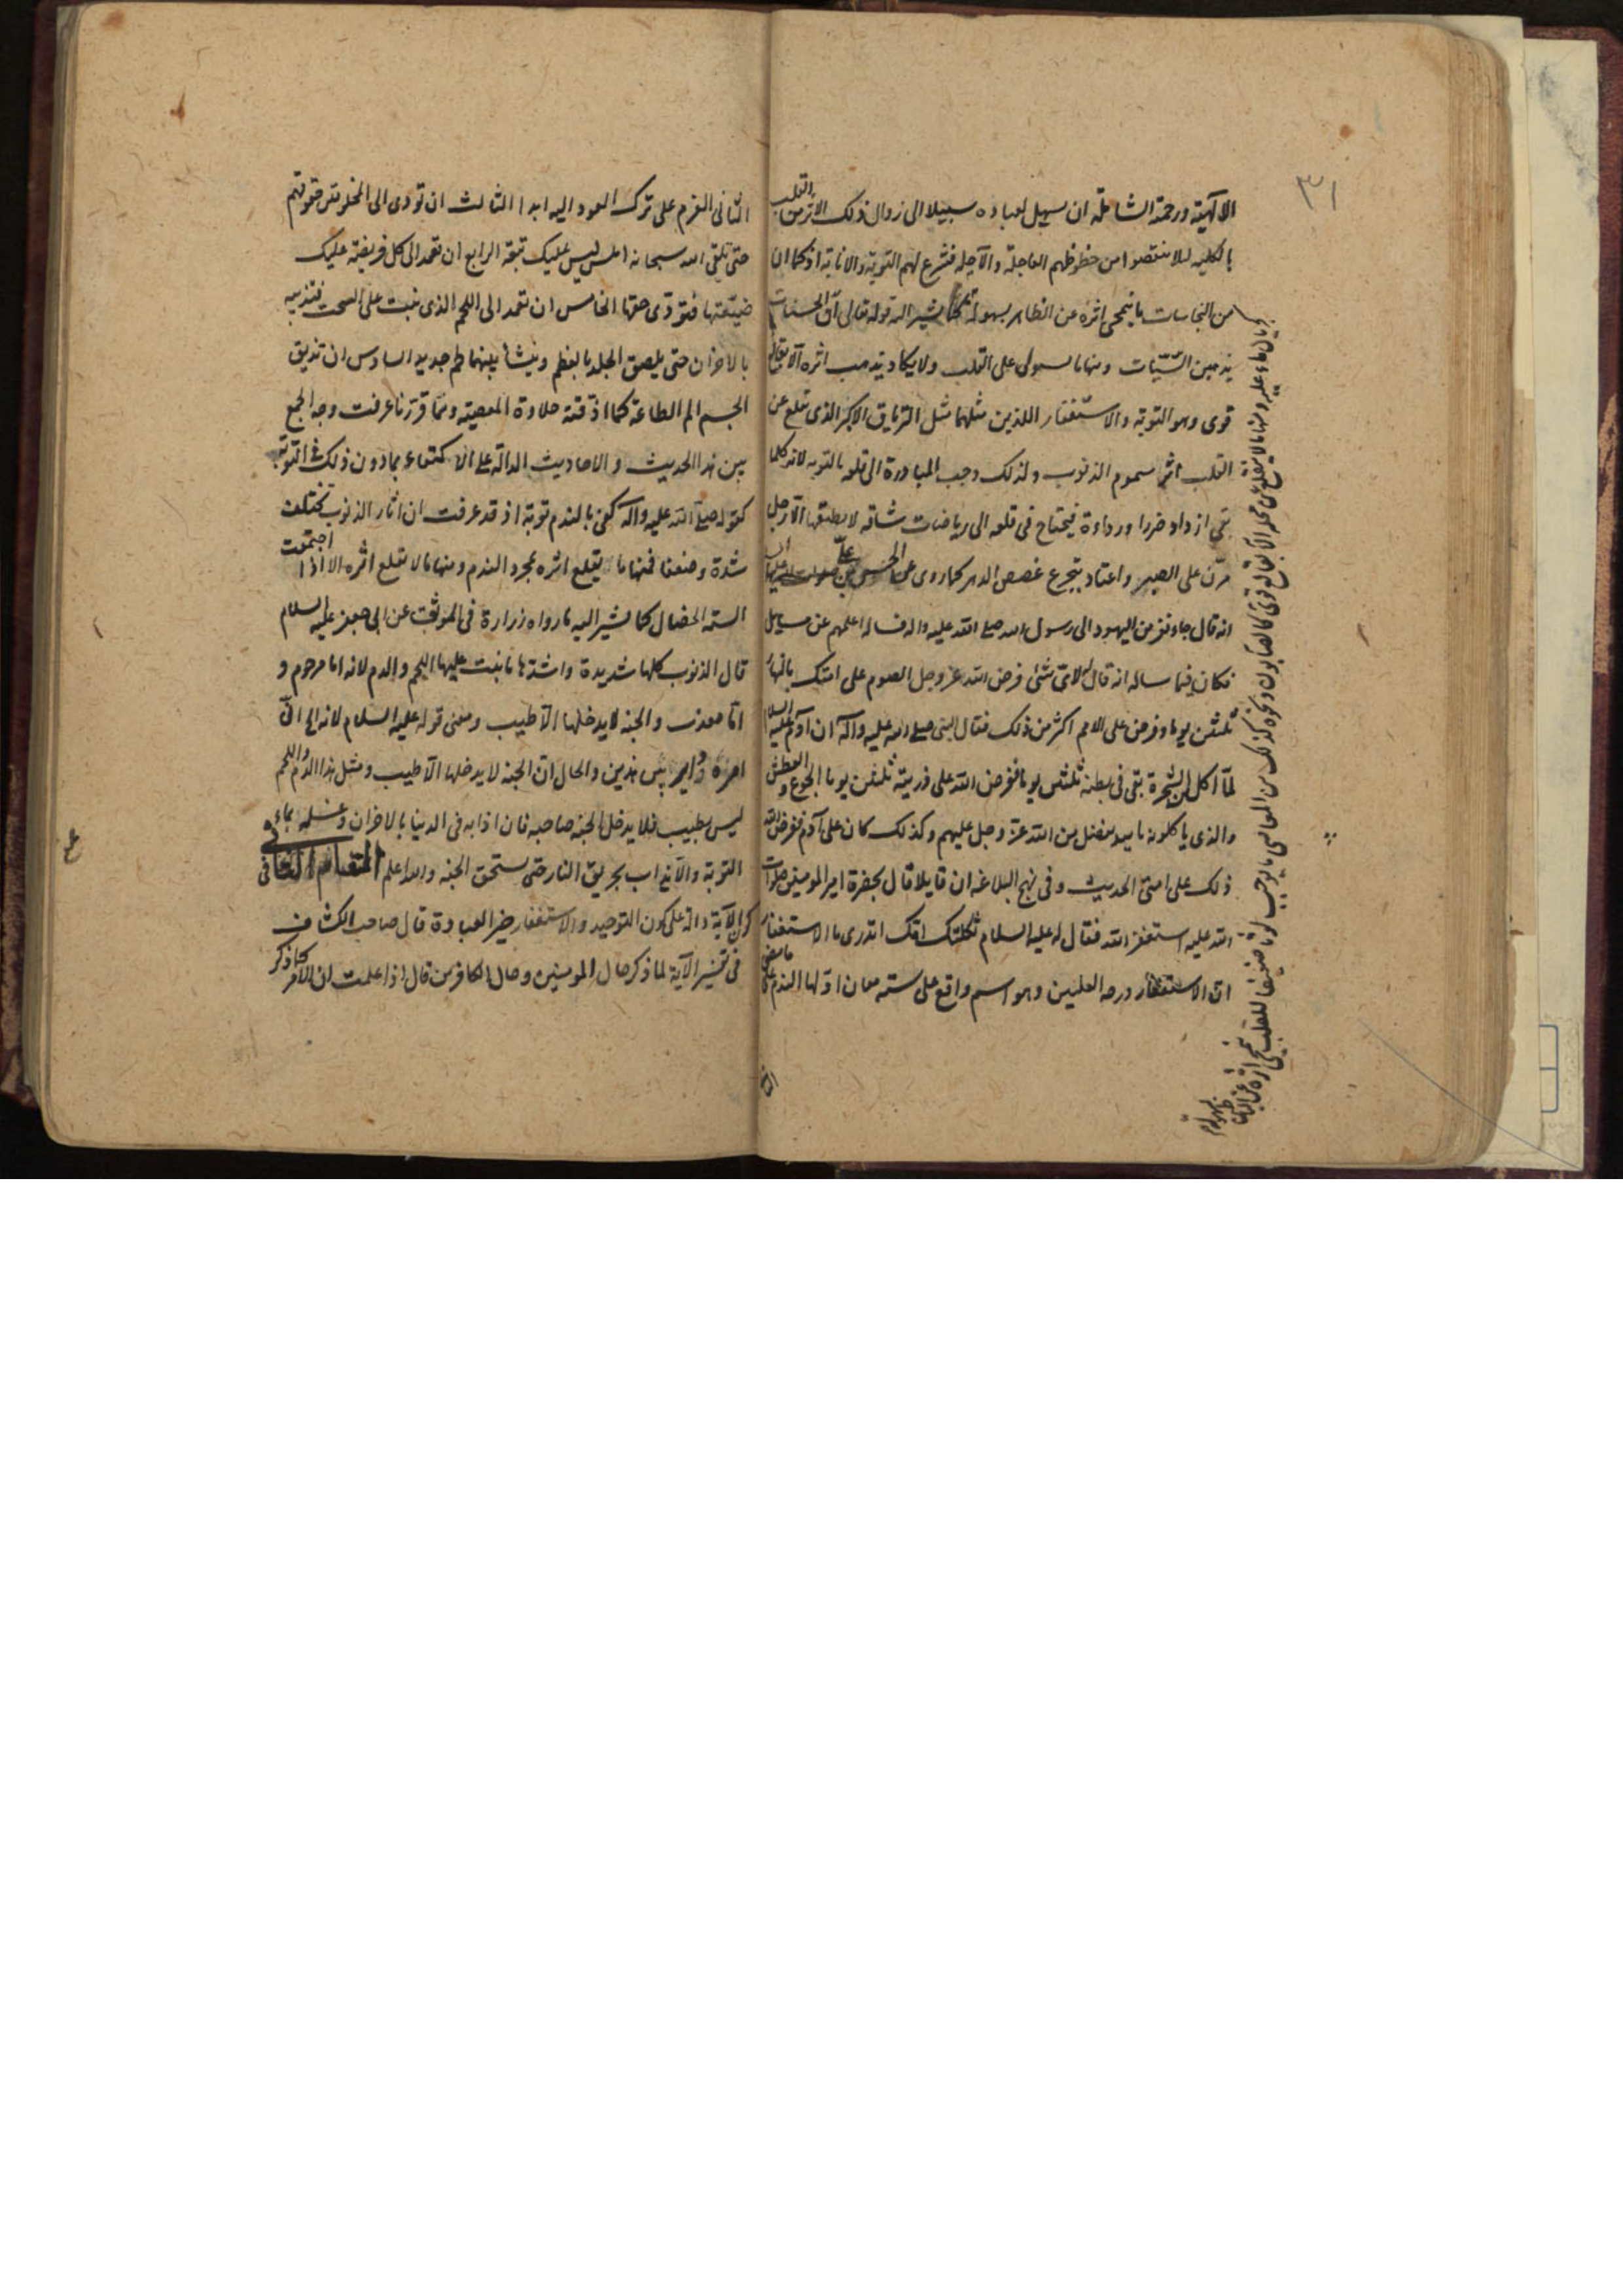 ٣١
الالهية ورحمته الشاملة ان سهل لعباده سبيلا الى زوال ذلك الاثر من القلب
بالكلية لئلا ينتقصوا من حظوظهم العاجلة والآجلة فشرع لهم التوبة والانابة اذ كما ان
من النجاسات ما ينمحى اثره عن الظاهر بسهولة كما يشير اليه قوله تعالى ان الحسنات
يذهبن السيئات ومنها ما يستولى على القلب ولا يكاد يذهب اثره الا بقالع
قوى وهو التوبة والاستغفار اللذين مثلهما مثل الترياق الاكبر الذى تقلع عن
القلب اثر سموم الذنوب ولذلك وجب المبادرة الى قلعه بالتوبه لانه كلما
بقى ازداد ضررا ورداءة فيحتاج فى قلعه الى رياضات شاقه لا يطيقها الا رجل
مرّن على الصبر واعتاد بتجرع غصص الدهر كما روى عن الحسن بن علىّ صلوات الله عليهما
انه قال جاء نفر من اليهود الى رسول الله صلى الله عليه واله فساله اعلمهم عن مسايل
فكان فيما ساله انه قال لاى شئ فرض الله عز وجل الصوم على امتك بالنهار
ثلثين يوما وفرض على الامم اكثر من ذلك فقال النبى صلى الله عليه وآله ان آدم عليه السلام
لمّا اكل من الشجرة بقى فى بطنه ثلثين يوما ففرض الله على ذريته ثلثين يوما الجوع والعطش
والذى ياكلونه بالليل تفضل من الله عزّ وجل عليهم وكذلك كان على آدم ففرض الله
ذلك على امتى الحديث وفى نهج البلاغه ان قايلا قال بحضرة امير المومنين صلوات
الله عليه استغفر الله فقال له عليه السلام ثكلتك امك اتدرى ما الاستغفار
ان الاستغفار درجه العليين وهو اسم واقع على سته معان اولها الندم على ما مضى
الثانى العزم على ترك العود اليه ابدا الثالث ان تودى الى المخلوقين حقوقهم
حتى تلقى الله سبحانه املس ليس عليك تبعة الرابع ان تعمد الى كل فريضة عليك
ضيعتها فتؤدى حقها الخامس ان تعمد الى اللحم الذى نبت على السحت فتذيبه
بالاحزان حتى يلصق الجلد بالعظم وينشأ بينهما لحم جديد السادس ان تذيق
الجسم الم الطاعة كما اذقته حلاوة المعصية وممّا قررنا عرفت وجه الجمع
بين هذا الحديث والاحاديث الدالة على الاكتفاء بما دون ذلك فى التوبة
كقوله صلى الله عليه واله كفى بالندم توبة اذ قد عرفت ان اثار الذنوب تختلف
شدة وضعفا فمنها ما يقلع اثره بمجرد الندم ومنها ما لا تقلع اثره الا اذا اجتمعت
الستة الخصال كما يشير اليه ما رواه زرارة فى الموثق عن ابى جعفر عليه السلام
قال الذنوب كلها شديدة واشدها ما نبت عليها اللحم والدم لانه اما مرحوم و
امّا معذب والجنة لا يدخلها الا طيب ومعنى قوله عليه السلام لانه الخ انّ
امره دائر بين هذين والحال ان الجنة لا يدخلها الا طيب ومثل هذا الدم واللحم
ليس بطيب فلا يدخل الجنة صاحبه فان اذابه فى الدنيا بالاحزان وغسله بماء
التوبة والا يذاب بحريق النار حتى يستحق الجنه والله اعلم المقام الثانى فى
كون الآية دالة على كون التوحيد والاستغفار خير العبادة قال صاحب الكشاف
فى تفسير الآية لما ذكر حال المومنين وحال الكافرين قال اذا علمت ان الامر كما ذكر